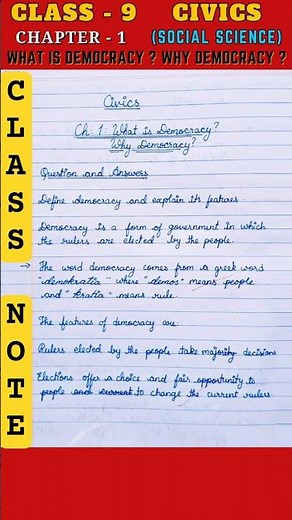 CLASS - 9 CIVICS
CHAPTER - 1 (SOCIAL SCIENCE)
WHAT IS DEMOCRACY ? WHY DEMOCRACY ?
CLASS NOTE
Civics
Ch: 1: What is Democracy?
Why Democracy?
Question and Answers
Define democracy and explain its features.
Democracy is a form of government in which
the rulers are elected by the people.
→ The word democracy comes from a greek word
"demokratia" where "demos" means people
and "kratia" means rule.
The features of democracy are:
Rulers elected by the people take majority decisions
Elections offer a choice and fair opportunity to
people and current to change the current rulers.